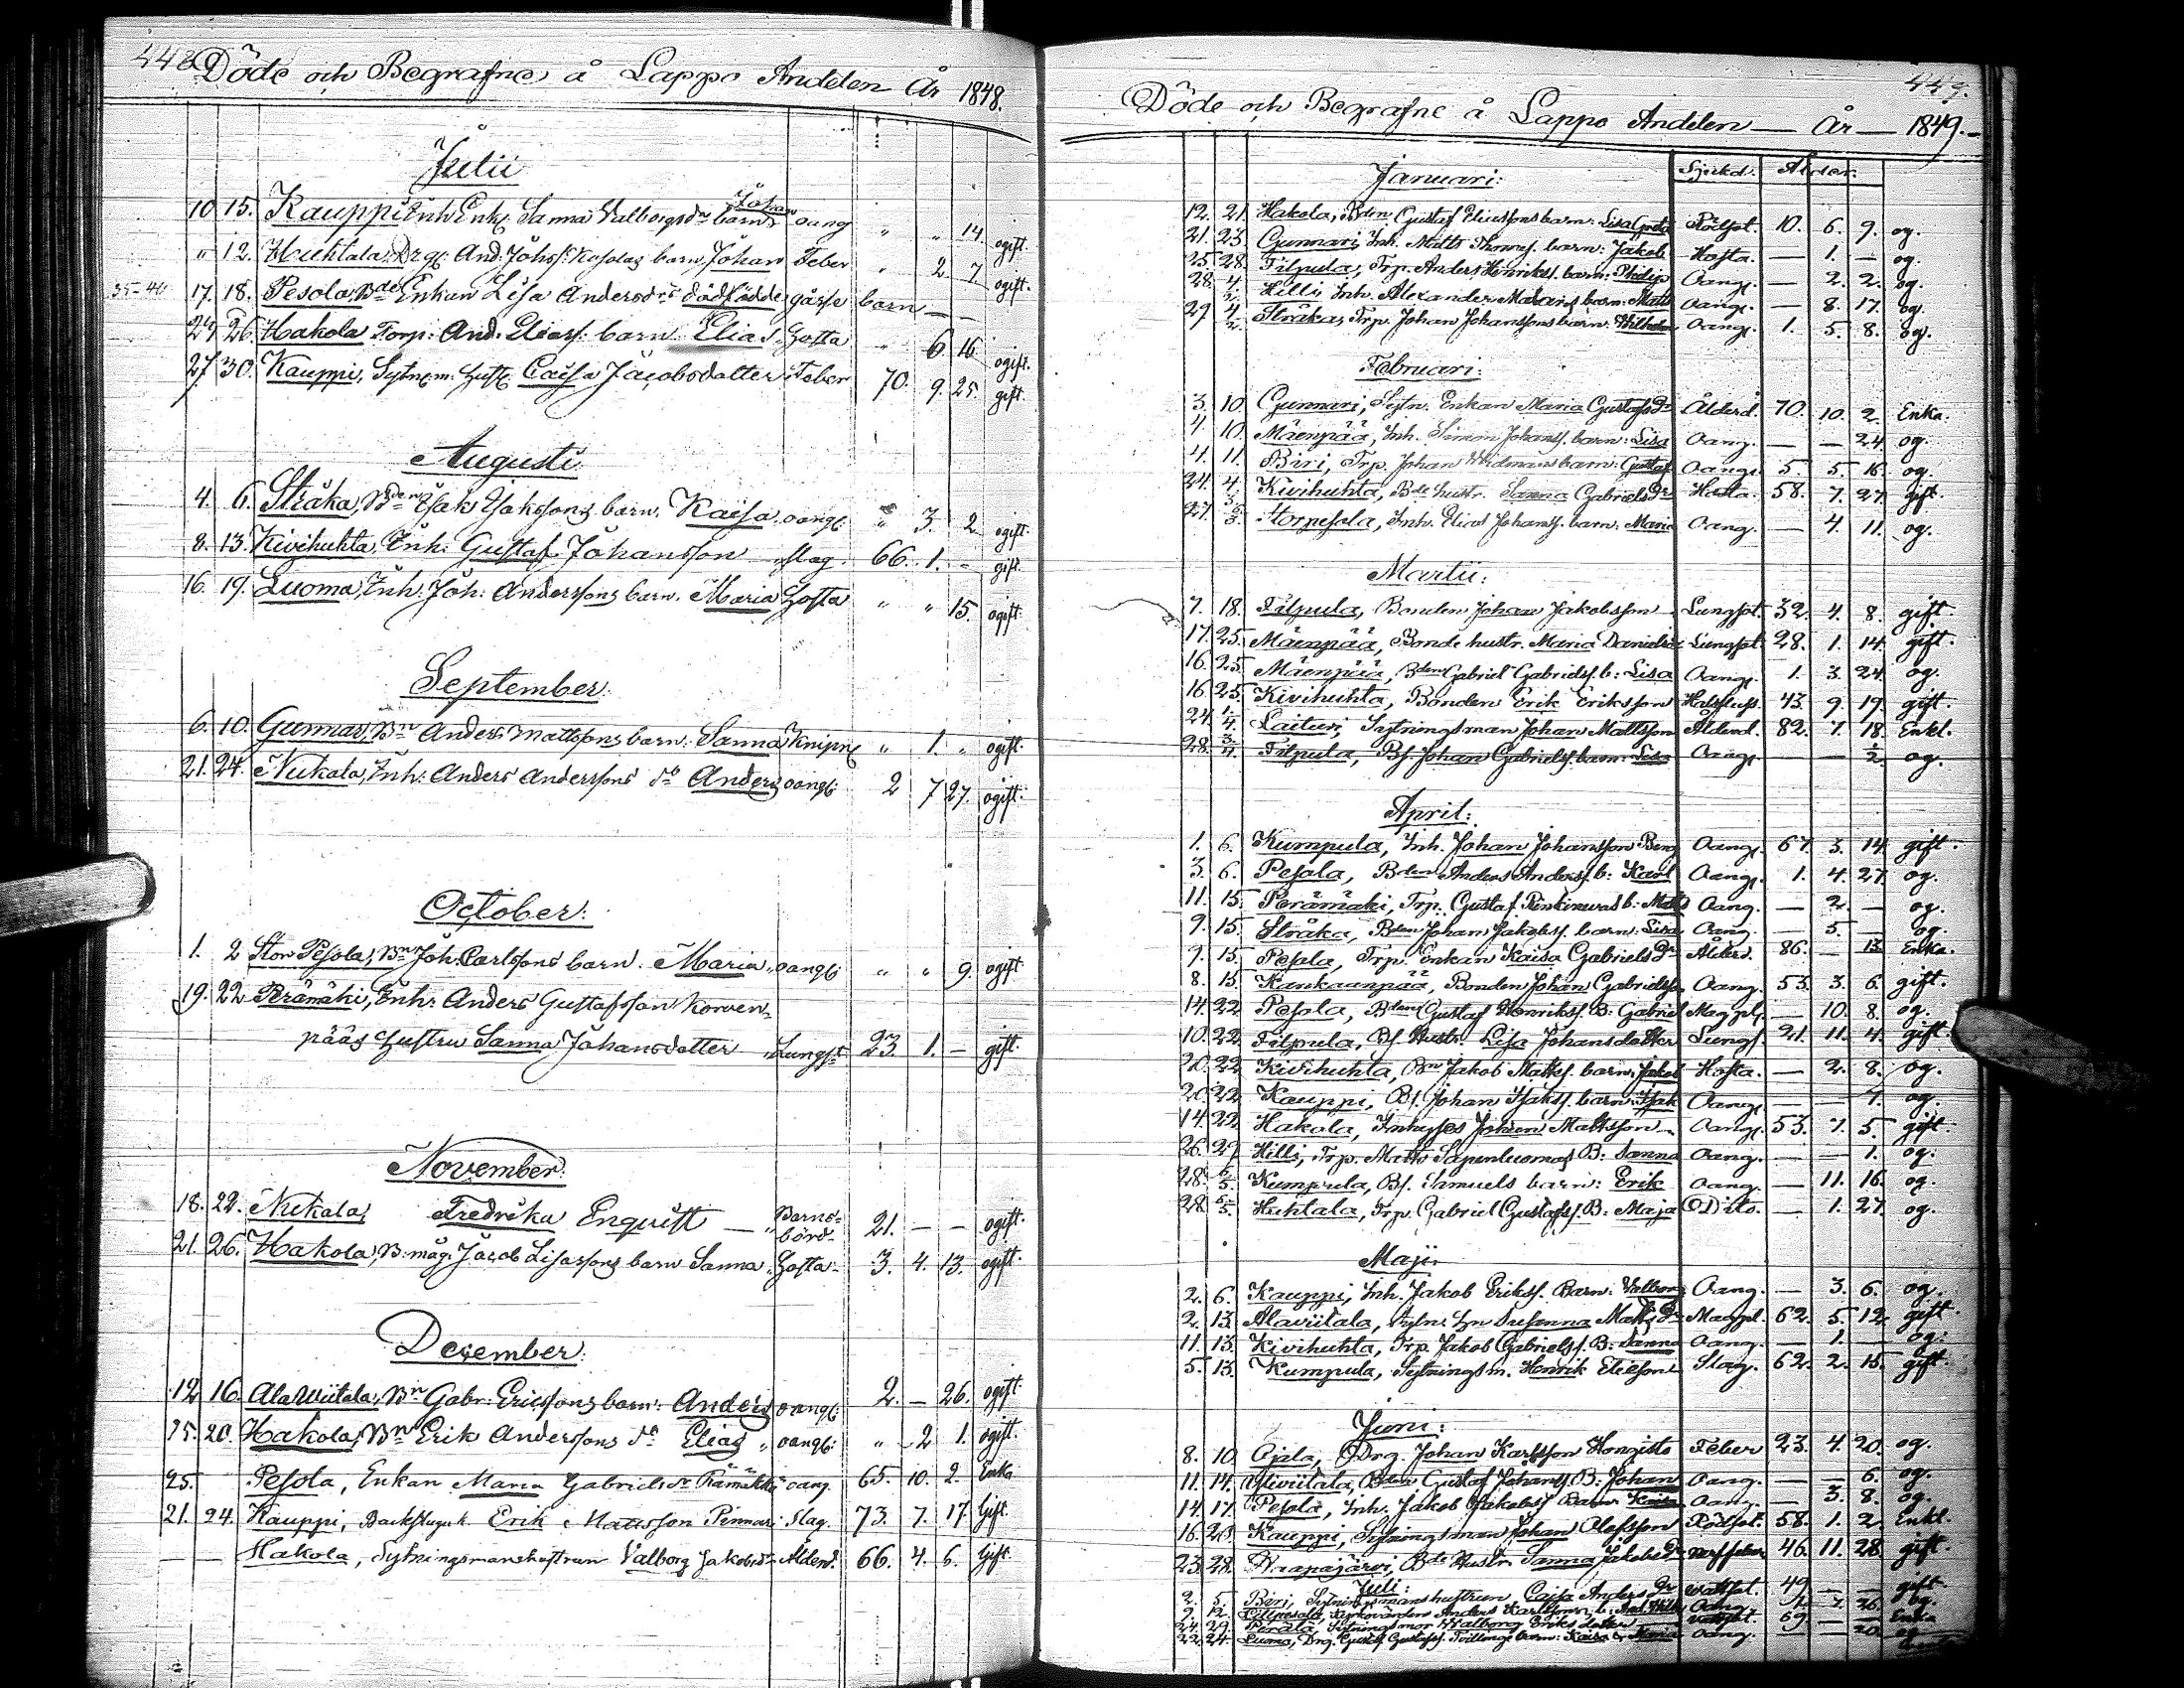 448.
Döde och Begrafne å Lappo Andelen År 1848.
Julii
10 15. Kauppi Inh Enk. Sanna Valborgsdr barn Johan oang " " 14. ogift.
" 12. Huhtala, Drg. And: Johs. Kojolas barn, Johan Feber " 2 7. ogift.
35-40 17. 18. Pesola Bde Enkan Lisa Andersdrs dödfödde gosse barn — —
24 26. Hakola Torp: And. Eliass. barn. Elias. Hosta " 6 16 ogift.
27. 30. Kauppi, Sytnm. Hust. Caisa Jacobsdotter Feber 70. 9. 25. gift.
Augusti
4. 6. Stråka, Bden Isak Isakssons barn. Kaisa. oang. " 3. 2 ogift.
8. 13. Kivihuhta, Inh: Gustaf Johansson Slag 66. 1. - gift.
16. 19. Luoma, Inh. Joh: Anderssons barn. Maria Hosta " " 15. ogift.
September.
6. 10. Gunnari, Bn Anders Mattssons barn. Sanna " 1. " ogift.
21. 24. Nukala, Inh: Anders Anderssons do Anders oang: 2 7 27. ogift.
October:
1. 2 Stor Pesola, Bn Joh. Carlssons barn. Maria oang: " " 9. ogift
19. 22 Perämäki, Inh: Anders Gustafsson Korven-
pääs Hustru Sanna Johansdotter Lungst 23. 1. — gift.
November:
18. 22. Nukala, Fredrika Enqvist — Barns-börd 21. — — ogift.
21. 26. Hakola, B: måg. Jacob Lisassons barn Sanna Hosta 3. 4. 13. ogift.
December:
12 16. Ala Wiitala, Bn Gabr. Ericssons barn: Anders oang: 2. — 26. ogift
15. 20. Hakola, Bn Erik Anderssons do Elias " oang: " 2 1. ogift.
25. Pesola, Enkan Maria Gabrielsdr oang. 65. 10. 2. Enka
21. 24. Kauppi, Erik Mattsson Pinnari Slag. 73. 7. 17. Gift.
— — Hakola, Sytningsmanshustrun Valborg Jakobsdr Ålderd. 66. 4. 6. Gift.
449.
Döde och Begrafne å Lappo Andelen — År — 1849.
Januari: Sjukd. Ålder.
12. 21. Hakola, Bden Gustaf Eliassons barn: Lisa Greta Rödsot. 10. 6. 9. og.
21. 23. Gunnari, Inh. Matts Thomass. barn: Jakob Hosta. — 1. — og.
25 28. Filpula, Trp. Anders Henrikss. barn: Philip Oang. — 2. 2. og.
28. 4/2 Hilli, Inh. Alexander barn: Matts Oang. — 8. 17. og.
29 4/2 Stråka, Trp. Johan Johanssons barn: Wilhelm Oang. 1. 5. 8. og.
Februari:
3. 10. Gunnari, Sytn. Enkan Maria Gustafsdr Ålderd. 70. 10. 2. Enka.
4. 10. Mäenpää, Inh. Simon Johanss. barn: Lisa Oang. — — 24. og.
4. 11. Biri, Trp. Johan Widmans barn: Gustaf Oang. 5. 5. 16. og.
24. 4/3 Kivihuhta, Bde hustr. Sanna Gabrielsdr Hosta. 58. 7. 27. gift.
27. Storpesola, Inh. Elias Johanss. barn: Maria Oang. — 4. 11. og.
Martii:
7. 18. Filpula, Bonden Johan Jakobsson Lungsot. 32. 4. 8. gift.
17. 25. Mäenpää, Bonde hustr. Maria Danielsdr Lungsot. 28. 1. 14. gift.
16. 25. Mäenpää, Bden Gabriel Gabrielss. b: Lisa Oang. 1. 3. 24. og.
16. 25. Kivihuhta, Bonden Erik Eriksson 43. 9. 19. gift.
24. 1/4 Laituri, Sytningsman Johan Mattsson Ålderd. 82. 7. 18. Enkl.
28. Filpula, Bs. Johan Gabrielss. barn: Lisa Oang. — — 1/2 og.
April:
1. 6. Kumpula, Inh. Johan Johansson Oang. 67. 3. 14. gift.
3. 6. Pesola, Bden Anders Anderss. b: Karl Oang. 1. 4. 27. og.
11. 15. Perämäki, Trp. Gustaf b: Matts Oang. — 2. — og.
9. 15. Stråka, Bden Johan Jakobss. barn: Lisa Oang. — 5. — og.
9. 15. Pesola, Trp. Enkan Kaisa Gabrielsdr Ålderd. 86. — 13. Enka.
8. 15. Kankaanpää, Bonden Johan Gabrielsson Oang. 53. 3. 6. gift.
14. 22. Pesola, Bden Gustaf Henrikss. B: Gabriel Magplg. — 10. 8. og.
10. 22. Filpula, Bs. Hustr. Lisa Johansdotter Lungs. 21. 11. 4. gift.
20. 22. Kivihuhta, Bn Jakob Mattss. barn: Jakob Hosta. — 2. 8. og.
20. 22. Kauppi, Bs. Johan Isakss. barn: Isak Oang. — — 1. og.
14. 22. Hakola, Inhyses Johan Mattsson Oang. 53. 7. 5. gift.
26. 29. Hilli, Trp. Matts B: Sanna Oang. — — 1. og.
28. 6/5 Kumpula, Bs. Samuels barn: Erik Oang. — 11. 16. og.
28 6/5 Huhtala, Trp. Gabriel Gustafss. B: Maja Dito. — 1. 27. og.
Maji.
2. 6. Kauppi, Inh. Jakob Erikss. Barn: Valborg Oang. — 3. 6. og.
2. 13. Alaviitala, Sytn. Susanna Mattsdr Magpl. 62. 5. 12. gift
11. 13. Kivihuhta, Trp. Jakob Gabrielss. B: Sanna Oang. — 1. — og.
5. 13. Kumpula, Sytningsm. Henrik Eliasson Slag. 62. 2. 15. gift.
Juni:
8. 10. Ojala, Drg. Johan Karlsson Hongisto Feber 23. 4. 20. og.
11. 14. Yliviitala, Bden Gustaf Johanss. B: Johan Oang. — — 6. og.
14. 17. Pesola, Inh. Jakob Jakobss. Barn: Kaisa Oang. — 3. 8. og.
16. 23. Kauppi, Sytningsman Johan Olofsson Rödsot. 58. 1. 2. Enkl.
23. 28. Haapajärvi, Bde Hustr. Sanna Jakobsdr 46. 11. 28. gift.
Juli:
2. 5. Biri, Sytningsmanshustrun Caisa Andersdr Wattsot. 49 — — gift.
9. 12. Anders Karlssons b: Oang. 7. 26. og.
24. 29. Perälä, Sytningsmor Walborg Eriksdotter 69 — — Enka
22. 24. Luoma, Drg. Gustaf Gustafss. Tvillinge barn: Kaisa & Maria Oang. — — 20. og.